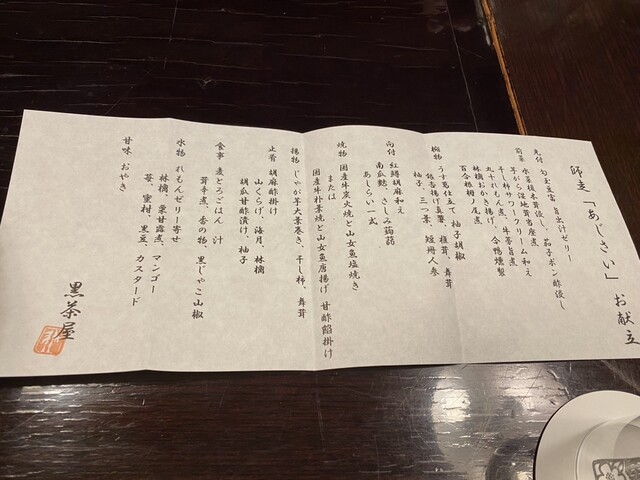 師走「あじさい」お献立
先付 旨出汁ゼリー
前菜 水菜榎木茸浸し、茄子ポン酢浸し
芋がら湿地茸当座煮
干し柿やつークリーム和え
丸十れもん煮、牛蒡旨煮
林檎おかき揚げ、合鴨燻製
百合根柚ノ尾煮
椀物 うす葛仕立て 柚子胡椒
銀杏揚げ真薯、椎茸、舞茸
柚子、三つ葉、短冊人参
向付 紅鱒胡麻和え
南瓜麩、さしみ蒟蒻
あしらい一式
焼物 国産牛炭火焼と山女魚塩焼き
または
国産牛朴葉焼と山女魚唐揚げ 甘酢餡掛け
揚物 じゃが芋大葉巻き、干し柿、舞茸
止肴 胡麻酢掛け
山くらげ、海月、林檎
胡瓜甘酢漬け、柚子
食事 麦とろごはん 汁
茸辛煮、香の物、黒じゃこ山椒
水物 れもんゼリー寄せ
林檎、栗甘露煮、マンゴー
苺、蜜柑、黒豆、カスタード
甘味 おやき
黒茶屋